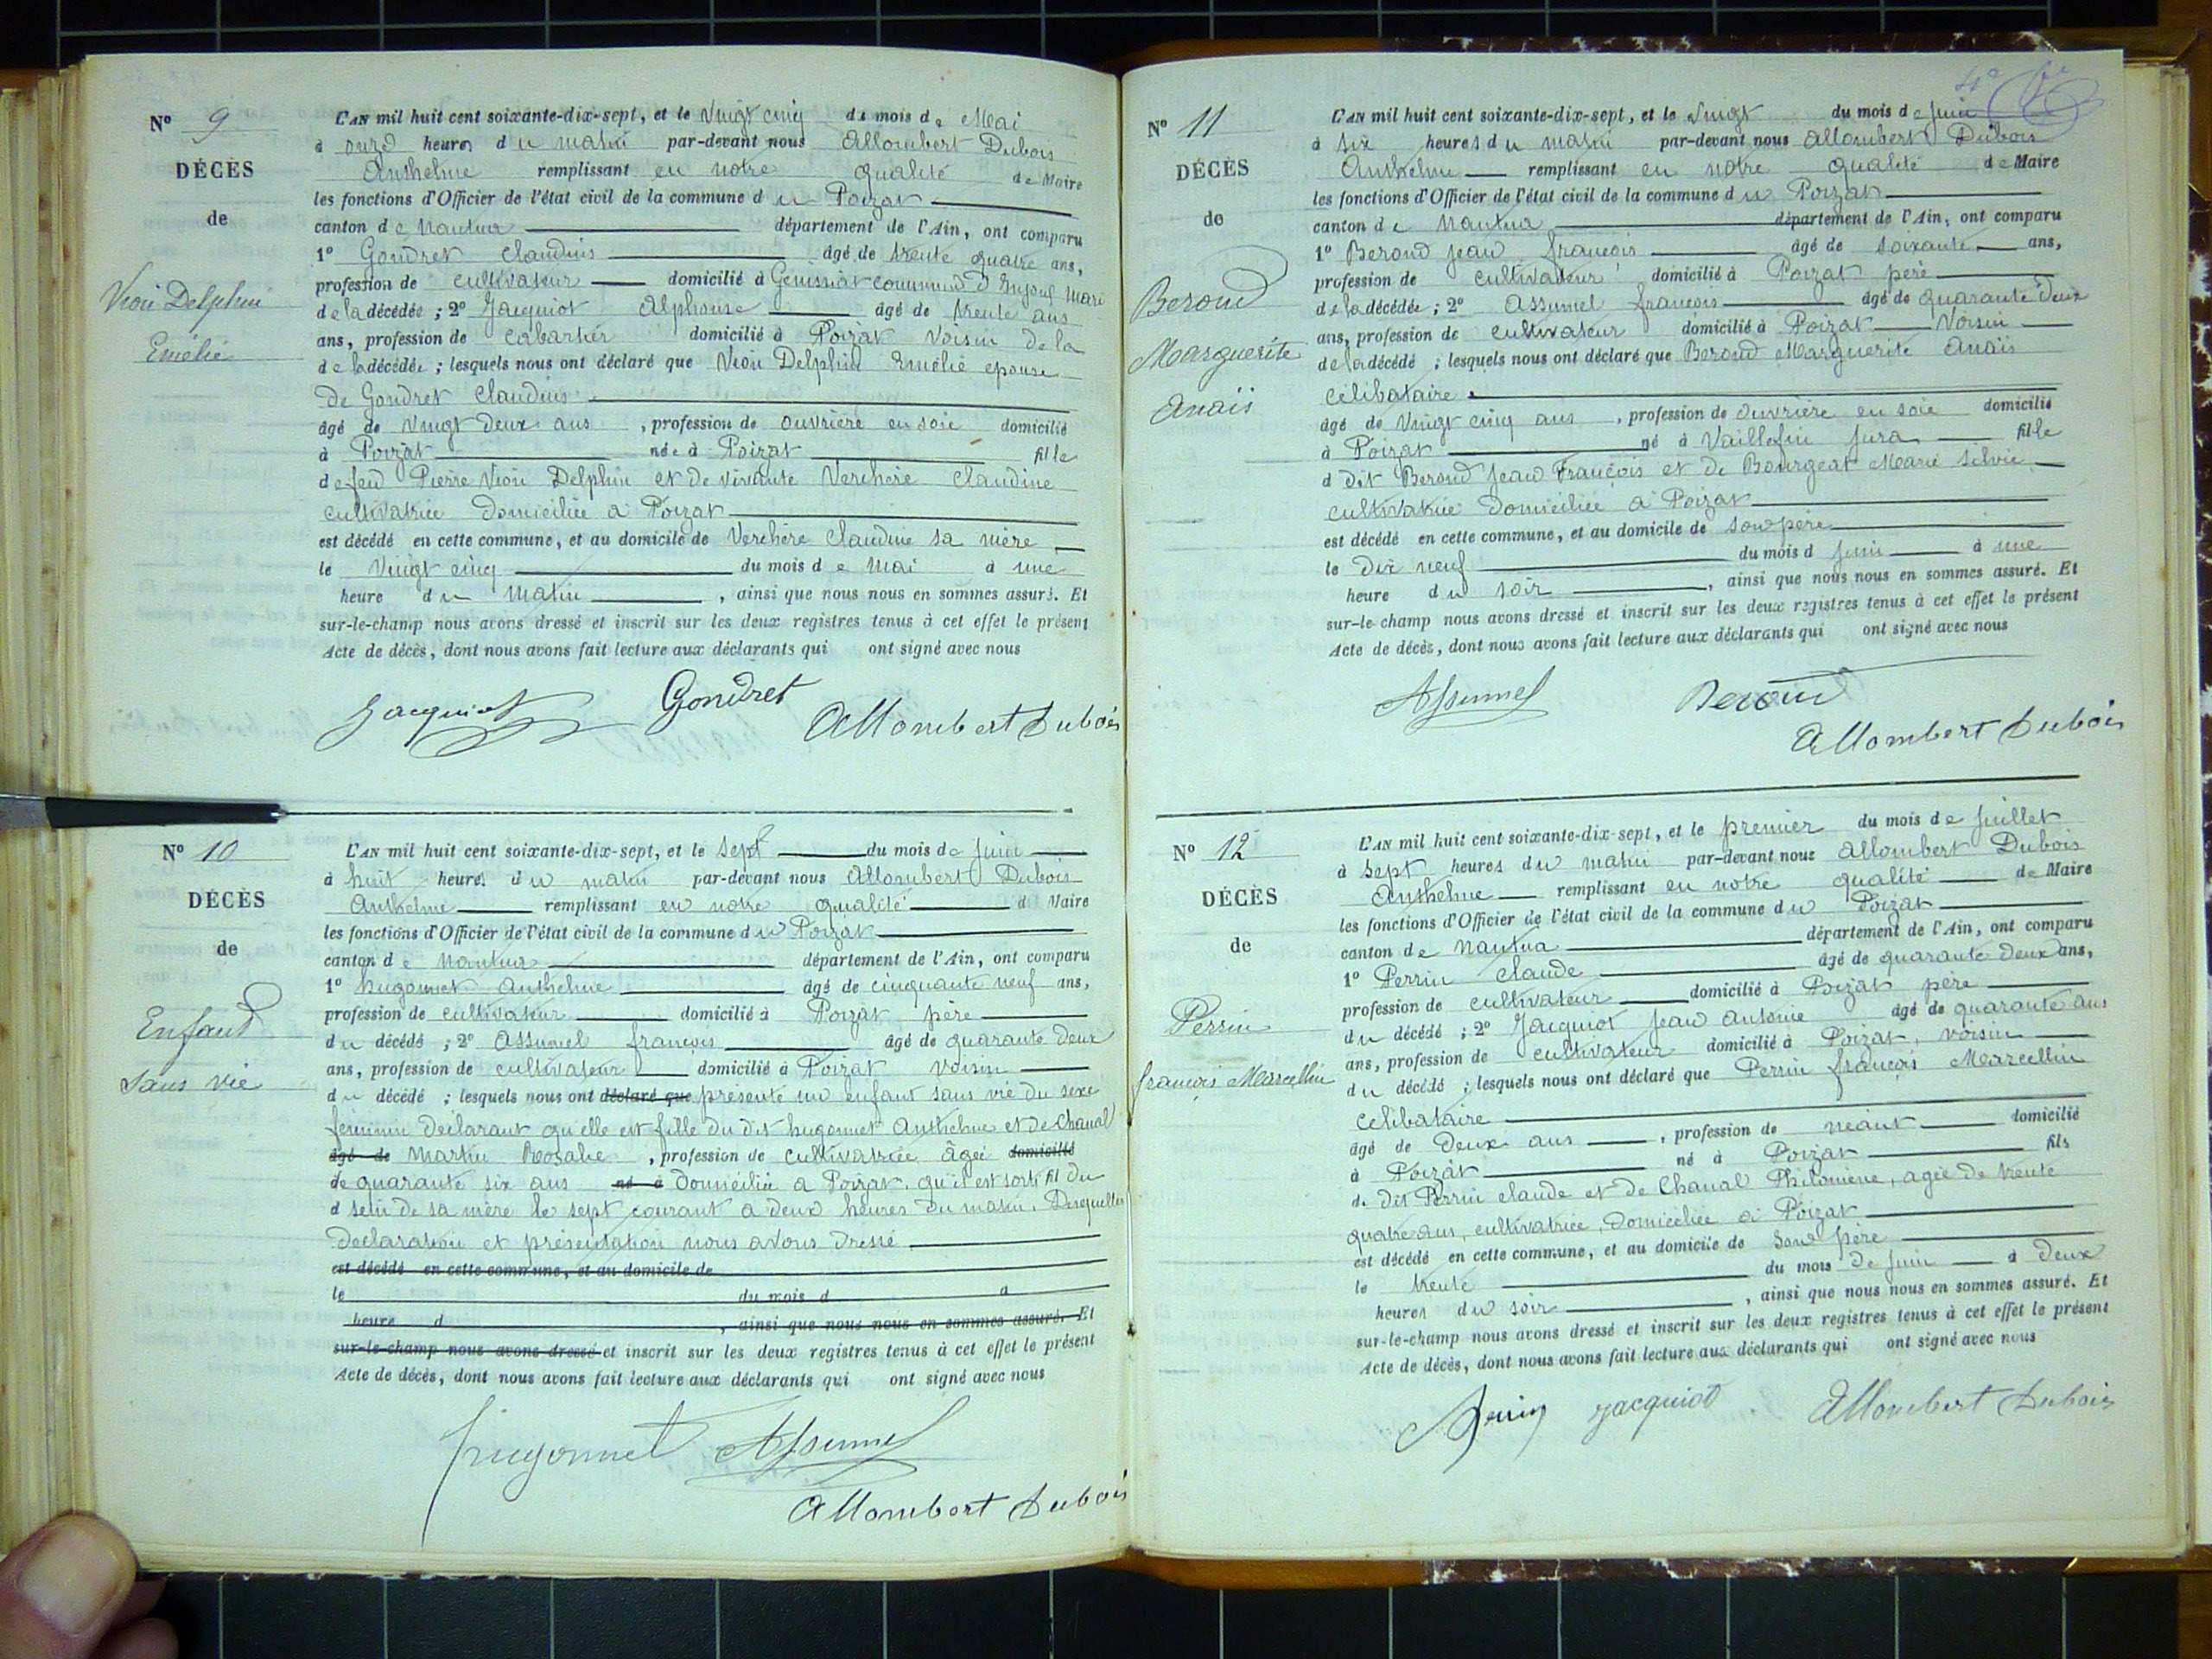 N° 9
DÉCÈS
de
Vion Delphin
Emélie
L'AN mil huit cent soixante-dix-sept, et le vingt cinq du mois de Mai
à onze heures du matin par-devant nous Allombert Dubois
Anthelme remplissant en notre qualité de Maire
les fonctions d'Officier de l'état civil de la commune du Poizat
canton de Nantua département de l'Ain, ont comparu
1° Gondret Claudius âgé de trente quatre ans,
profession de cultivateur domicilié à Genissiat commune d'Injoux Mari
de la décédée ; 2° Jacquiot Alphonse âgé de trente ans
ans, profession de cabartier domicilié à Poizat voisin de la
de la décédée ; lesquels nous ont déclaré que Vion Delphin Emélie epouse
de Gondret Claudius
âgé de vingt deux ans , profession de ouvrière en soie domicilié
à Poizat née à Poizat fille
de feu Pierre Vion Delphin et de vivante Verchère Claudine
cultivatrice domiciliée a Poizat
est décédé en cette commune, et au domicile de Verchère Claudine sa mère
le vingt cinq du mois de Mai à une
heure du matin , ainsi que nous nous en sommes assuré. Et
sur-le-champ nous avons dressé et inscrit sur les deux registres tenus à cet effet le présent
Acte de décès, dont nous avons fait lecture aux déclarants qui ont signé avec nous
Jacquiot Gondret
Allombert Dubois
N° 10
DÉCÈS
de
Enfant
Sans vie
L'AN mil huit cent soixante-dix-sept, et le sept du mois de juin
à huit heures du matin par-devant nous Allombert Dubois
Anthelme remplissant en notre qualité de Maire
les fonctions d'Officier de l'état civil de la commune du Poizat
canton de Nantua département de l'Ain, ont comparu
1° hugonnet Anthelme âgé de cinquante neuf ans,
profession de cultivateur domicilié à Poizat père
du décédé ; 2° Assumel françois âgé de quarante deux
ans, profession de cultivateur domicilié à Poizat voisin
du décédé ; lesquels nous ont déclaré que présenté un enfant sans vie du sexe
feminin declarant qu'elle est fille du dit hugonnet Anthelme et de Chanal
âgé de Martin Rosalie , profession de cultivatrice âgée domicilié
de quarante six ans né à domiciliée a Poizat. qu'il est sorti fil du
d sein de sa mère le sept courant a deux heures du matin. Desquelles
declaration et présentation nous avons dressé
est décédé en cette commune, et au domicile de
le du mois d à
heure d , ainsi que nous nous en sommes assuré. Et
sur-le-champ nous avons dressé et inscrit sur les deux registres tenus à cet effet le présent
Acte de décès, dont nous avons fait lecture aux déclarants qui ont signé avec nous
hugonnet Assumel
Allombert Dubois
N° 11
DÉCÈS
de
Beroud
Marguerite
Anaïs
L'AN mil huit cent soixante-dix-sept, et le vingt du mois de juin
à six heures du matin par-devant nous Allombert Dubois
Anthelme remplissant en notre qualité de Maire
les fonctions d'Officier de l'état civil de la commune du Poizat
canton de Nantua département de l'Ain, ont comparu
1° Beroud Jean françois âgé de soixante ans,
profession de cultivateur domicilié à Poizat père
de la décédée ; 2° Assumel françois âgé de quarante deux
ans, profession de cultivateur domicilié à Poizat Voisin
de la décédé ; lesquels nous ont déclaré que Beroud Marguerite Anaïs
célibataire
âgé de vingt cinq ans , profession de ouvrière en soie domicilié
à Poizat né à Vaillofin Jura fille
d dit Beroud Jean François et de Bourgeat Marie Silvie
cultivatrice domiciliée a Poizat
est décédé en cette commune, et au domicile de son père
le dix neuf du mois d juin à une
heure du soir , ainsi que nous nous en sommes assuré. Et
sur-le-champ nous avons dressé et inscrit sur les deux registres tenus à cet effet le présent
Acte de décès, dont nous avons fait lecture aux déclarants qui ont signé avec nous
Assumel Beroud
Allombert Dubois
N° 12
DÉCÈS
de
Perrin
françois Marcellin
L'AN mil huit cent soixante-dix-sept, et le premier du mois de juillet
à sept heures du matin par-devant nous Allombert Dubois
Anthelme remplissant en notre qualité de Maire
les fonctions d'Officier de l'état civil de la commune du Poizat
canton de Nantua département de l'Ain, ont comparu
1° Perrin Claude âgé de quarante deux ans,
profession de cultivateur domicilié à Poizat père
du décédé ; 2° Jacquiot Jean Antoine âgé de quarante ans
ans, profession de cultivateur domicilié à Poizat, voisin
du décédé ; lesquels nous ont déclaré que Perrin françois Marcellin
celibataire
âgé de Deux ans , profession de néant domicilié
à Poizat né à Poizat fils
du dit Perrin Claude et de Chanal Philomène, agée de trente
quatre ans, cultivatrice, domiciliée a Poizat
est décédé en cette commune, et au domicile de son père
le trente du mois de juin à deux
heures du soir , ainsi que nous nous en sommes assuré. Et
sur-le-champ nous avons dressé et inscrit sur les deux registres tenus à cet effet le présent
Acte de décès, dont nous avons fait lecture aux déclarants qui ont signé avec nous
Perrin Jacquiot Allombert Dubois